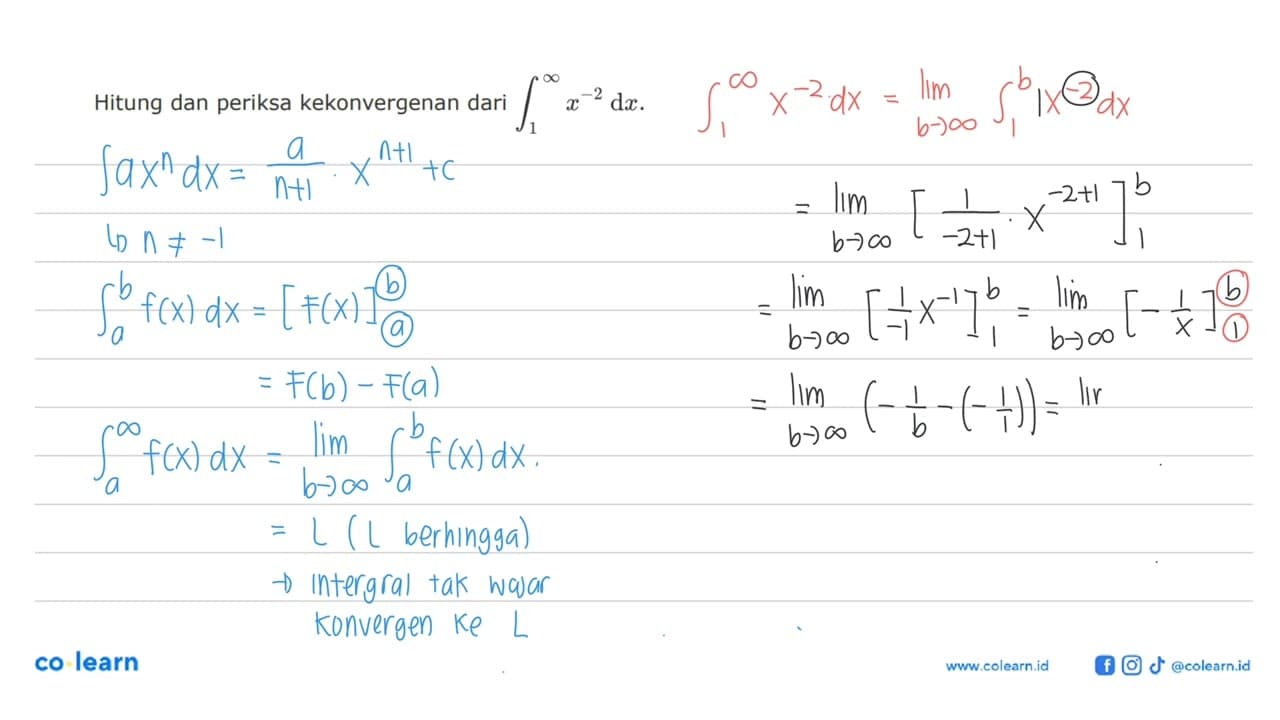 Hitung dan periksa kekonvergenan dari ∫₁^∞ x⁻² dx.
∫axⁿ dx = a/(n+1) · xⁿ⁺¹ + c
↳ n ≠ -1
∫ₐᵇ f(x) dx = [F(x)]ₐᵇ
= F(b) - F(a)
∫ₐ^∞ f(x) dx = lim b→∞ ∫ₐᵇ f(x) dx.
= L (L berhingga)
→ intergral tak wajar
konvergen ke L
∫₁^∞ x⁻² dx = lim b→∞ ∫₁ᵇ 1x⁻² dx
= lim b→∞ [1/(-2+1) · x⁻²⁺¹]₁ᵇ
= lim b→∞ [1/-1 x⁻¹]₁ᵇ = lim b→∞ [-1/x]₁ᵇ
= lim b→∞ (-1/b - (-1/1)) = lir
co learn
www.colearn.id
@colearn.id